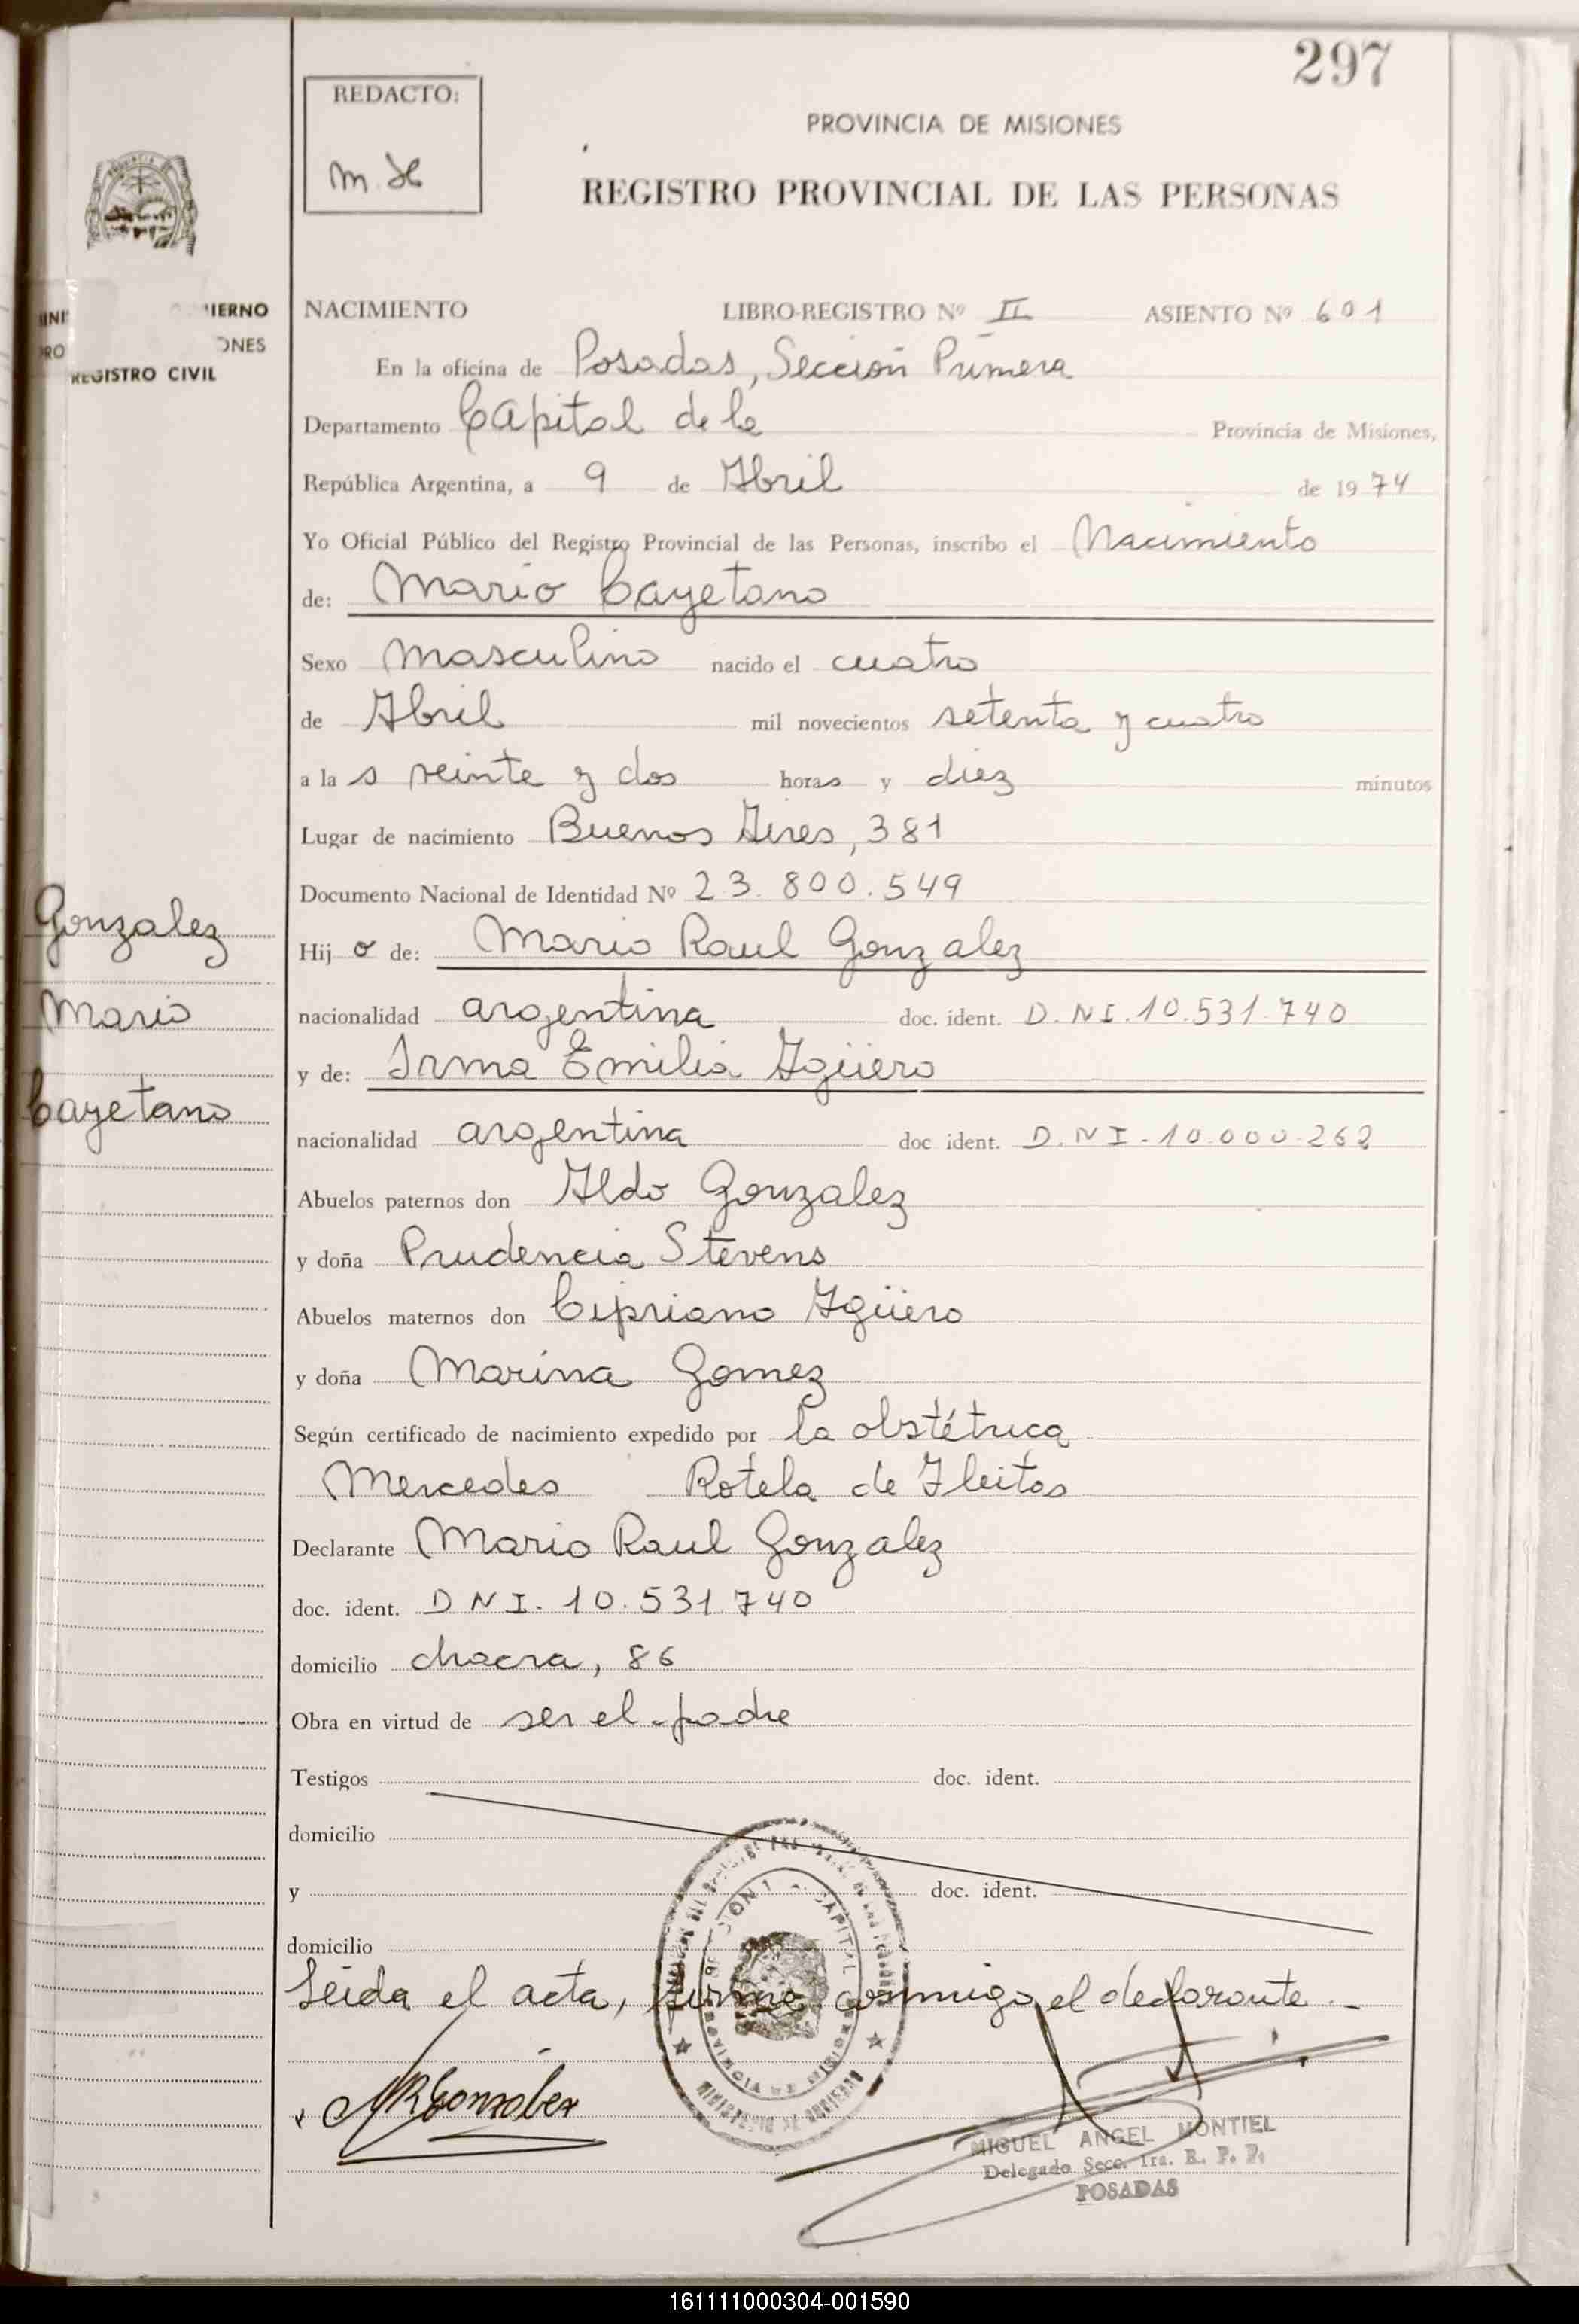 297
REDACTO:
M. H
PROVINCIA DE MISIONES
REGISTRO PROVINCIAL DE LAS PERSONAS
IERNO
ONES
REGISTRO CIVIL
NACIMIENTO LIBRO-REGISTRO Nº II ASIENTO Nº 601
En la oficina de Posadas, Sección Primera
Departamento Capital de la Provincia de Misiones,
República Argentina, a 9 de Abril de 1974
Yo Oficial Público del Registro Provincial de las Personas, inscribo el Nacimiento
de: Mario Cayetano
Sexo masculino nacido el cuatro
de Abril mil novecientos setenta y cuatro
a la s veinte y dos horas y diez minutos
Lugar de nacimiento Buenos Aires, 381
Documento Nacional de Identidad Nº 23.800.549
Gonzalez
Hij o de: Mario Raul Gonzalez
Mario
nacionalidad argentina doc. ident. D.N.I. 10.531.740
y de: Irma Emilia Agüero
Cayetano
nacionalidad argentina doc ident. D.N.I. 10.000.262
Abuelos paternos don Aldo Gonzalez
y doña Prudencia Stevens
Abuelos maternos don Cipriano Agüero
y doña Marina Gomez
Según certificado de nacimiento expedido por la obstétrica
Mercedes Rotela de Fleitas
Declarante Mario Raul Gonzalez
doc. ident. D N I. 10.531.740
domicilio chacra, 86
Obra en virtud de ser el padre
Testigos doc. ident.
domicilio
y doc. ident.
domicilio
Leida el acta, firma conmigo el declarante.-
MRGonzalez
MIGUEL ANGEL MONTIEL
Delegado Secc. 1ra. R. P. P.
POSADAS
161111000304-001590